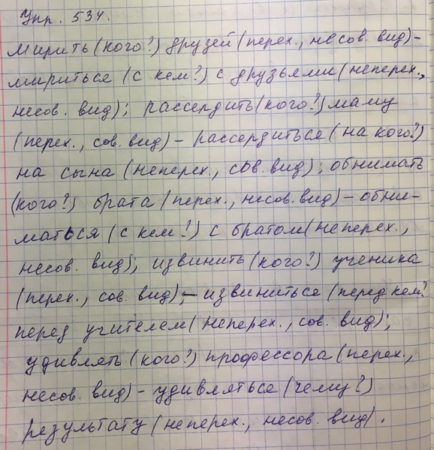 Упр. 534.
мирить (кого?) друзей (перех., несов. вид) -
мириться (с кем?) с друзьями (неперех.,
несов. вид); рассердить (кого?) маму
(перех., сов. вид) - рассердиться (на кого?)
на сына (неперех., сов. вид); обнимать
(кого?) брата (перех., несов. вид) - обни-
маться (с кем?) с братом (неперех.,
несов. вид); извинить (кого?) ученика
(перех., сов. вид) - извиниться (перед кем?
перед учителем (неперех., сов. вид);
удивлять (кого?) профессора (перех.,
несов. вид) - удивляться (чему?)
результату (неперех., несов. вид).